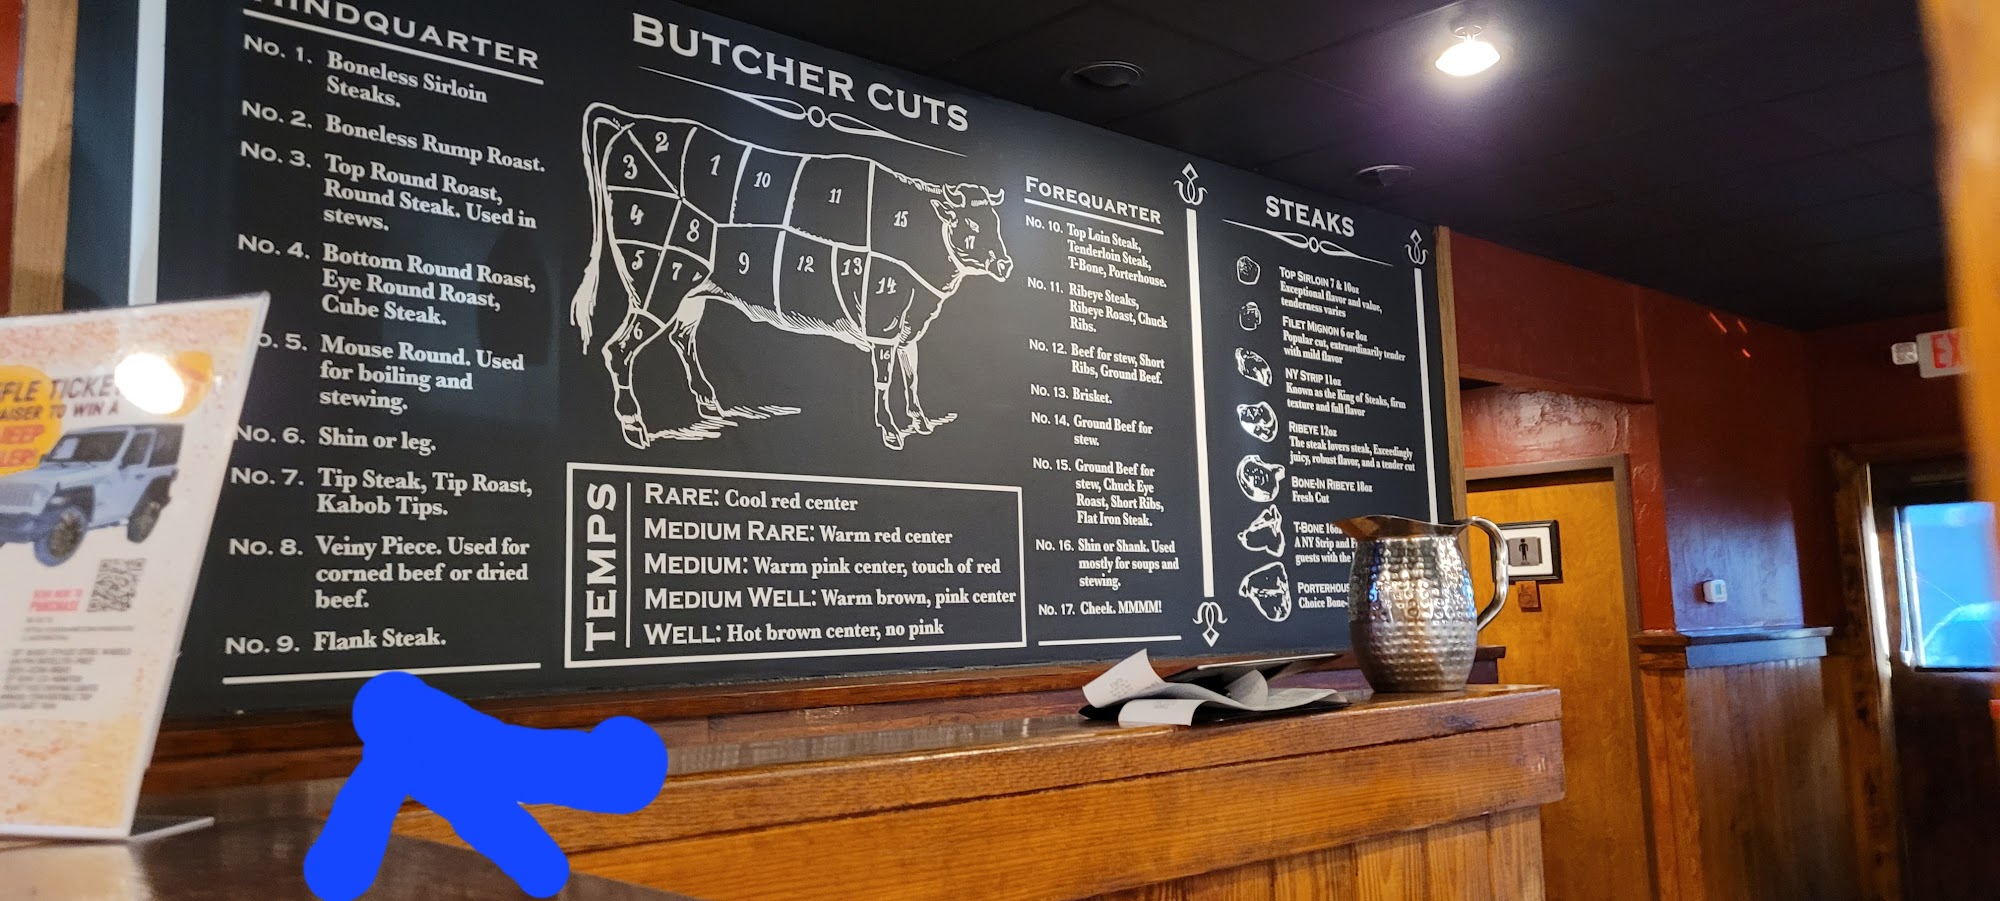 HINDQUARTER
No. 1. Boneless Sirloin
Steaks.
No. 2. Boneless Rump Roast.
No. 3. Top Round Roast,
Round Steak. Used in
stews.
No. 4. Bottom Round Roast,
Eye Round Roast,
Cube Steak.
o. 5. Mouse Round. Used
for boiling and
stewing.
No. 6. Shin or leg.
No. 7. Tip Steak, Tip Roast,
Kabob Tips.
No. 8. Veiny Piece. Used for
corned beef or dried
beef.
No. 9. Flank Steak.
BUTCHER CUTS
2
3
1
10
11
15
17
4
8
5
7
9
12
13
14
6
16
TEMPS
RARE: Cool red center
MEDIUM RARE: Warm red center
MEDIUM: Warm pink center, touch of red
MEDIUM WELL: Warm brown, pink center
WELL: Hot brown center, no pink
FOREQUARTER
No. 10. Top Loin Steak,
Tenderloin Steak,
T-Bone, Porterhouse.
No. 11. Ribeye Steaks,
Ribeye Roast, Chuck
Ribs.
No. 12. Beef for stew, Short
Ribs, Ground Beef.
No. 13. Brisket.
No. 14. Ground Beef for
stew.
No. 15. Ground Beef for
stew, Chuck Eye
Roast, Short Ribs,
Flat Iron Steak.
No. 16. Shin or Shank. Used
mostly for soups and
stewing.
No. 17. Cheek. MMMM!
STEAKS
TOP SIRLOIN 7 & 10oz
Exceptional flavor and value,
tenderness varies
FILET MIGNON 6 or 8oz
Popular cut, extraordinarily tender
with mild flavor
NY STRIP 11oz
Known as the King of Steaks, firm
texture and full flavor
RIBEYE 12oz
The steak lovers steak, Exceedingly
juicy, robust flavor, and a tender cut
BONE-IN RIBEYE 18oz
Fresh Cut
T-BONE 16oz
A NY Strip and F
guests with the
PORTERHOUS
Choice Bone-
FFLE TICKE
AISER TO WIN A
JEEP
PURCHASE
EX